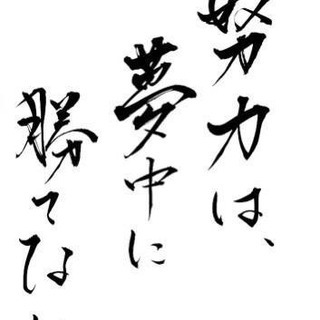 努力は、
夢中に
勝てな